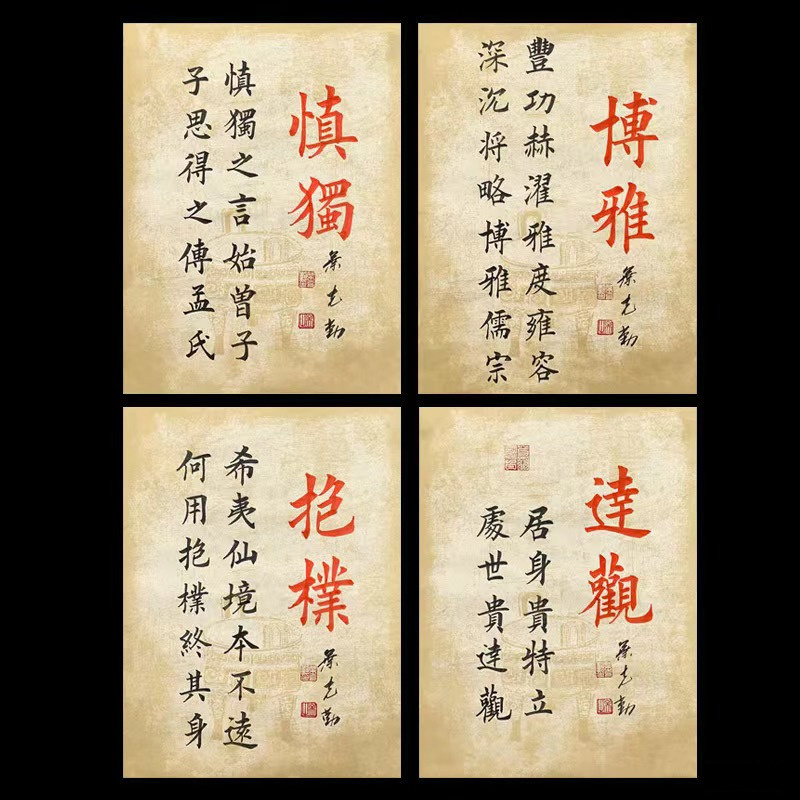 慎獨
慎獨之言始曾子
子思得之傳孟氏
博雅
豐功赫濯雅度雍容
深沉将略博雅儒宗
抱樸
希夷仙境本不遠
何用抱樸終其身
達觀
居身貴特立
處世貴達觀